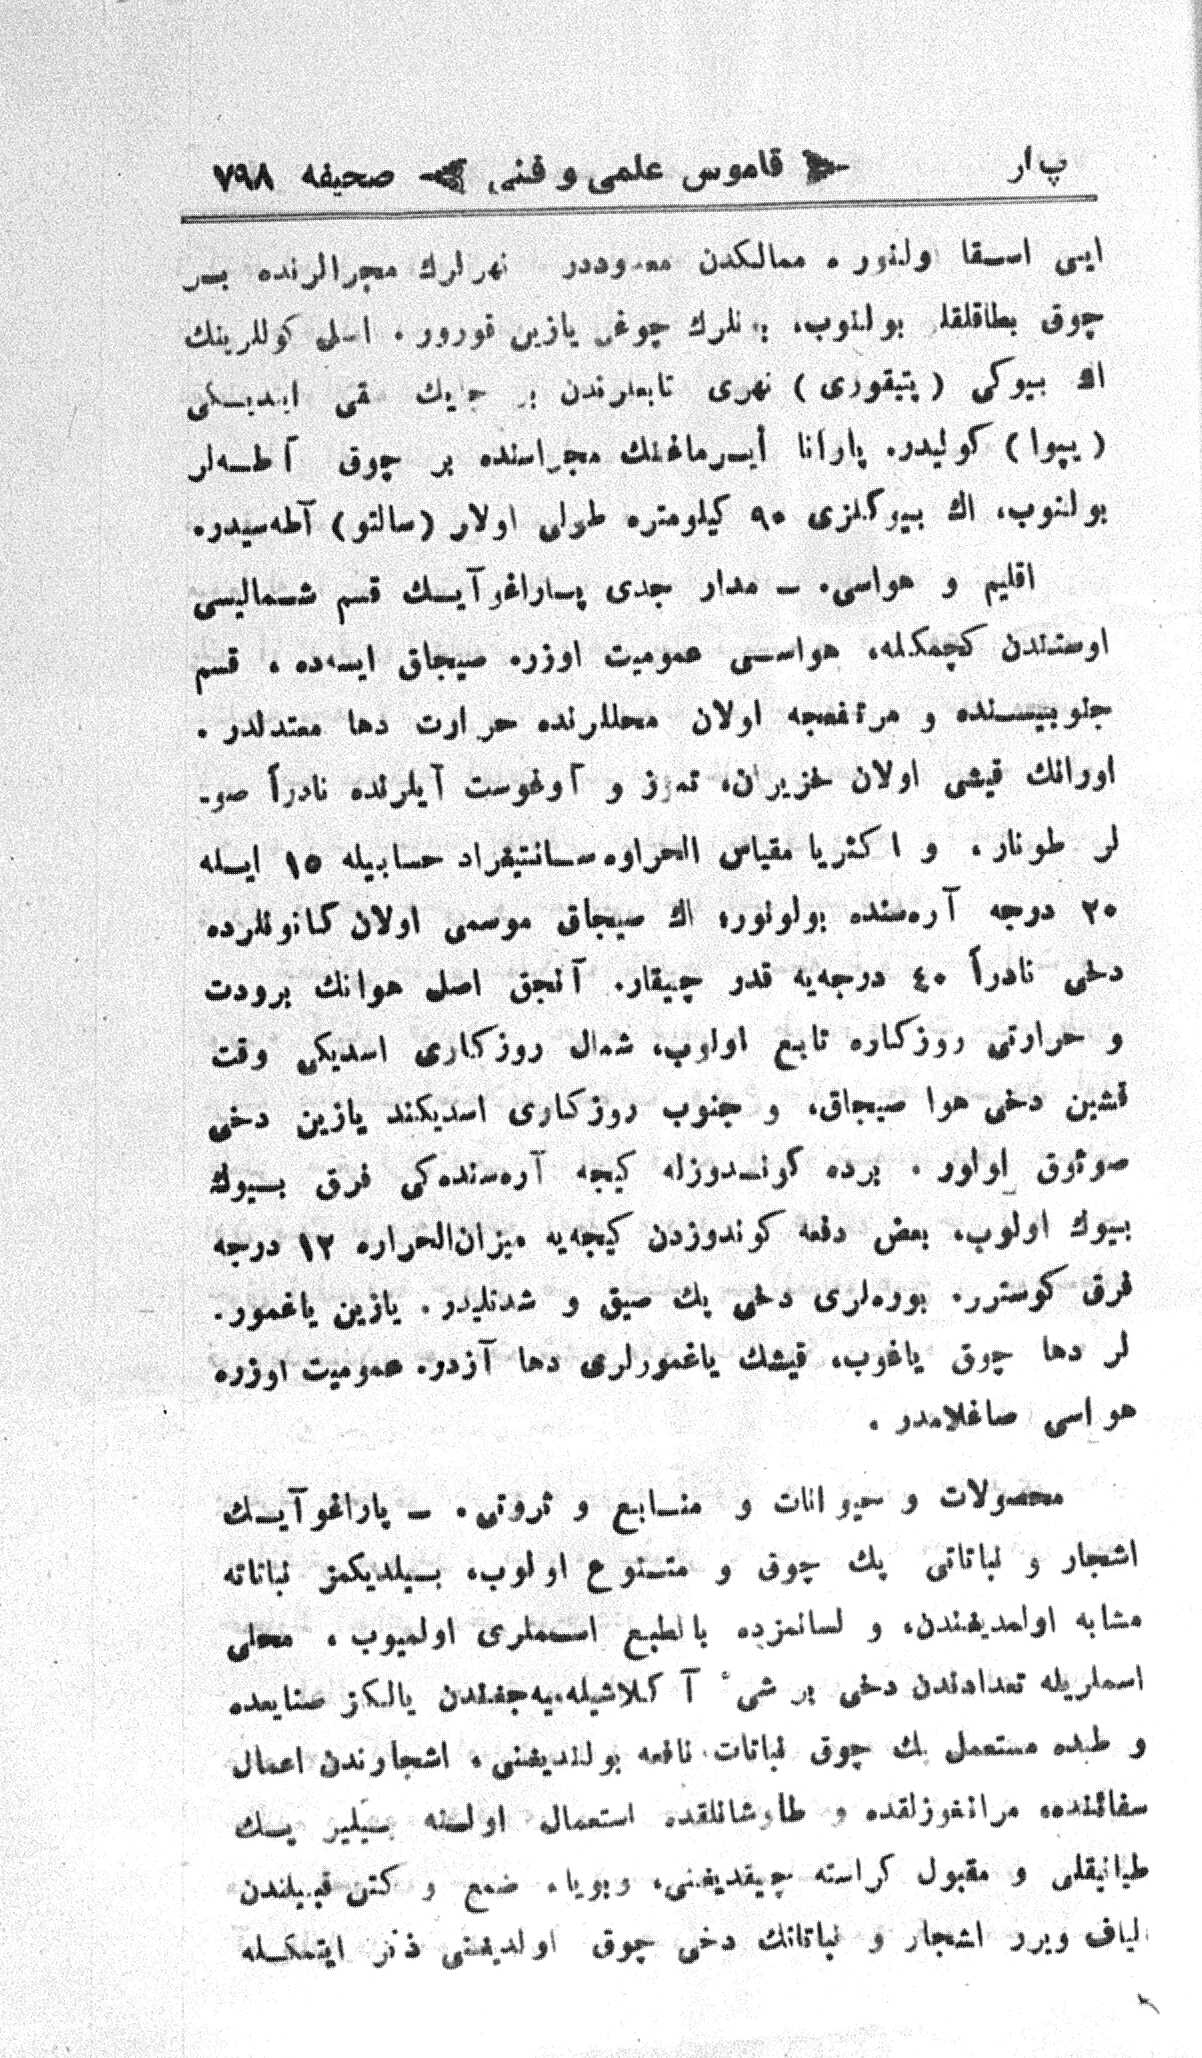 پ ار قاموس علمی و فنی صحیفه ٧٩٨
ایی اسـقا اولنور. ممالکدن معدوددر نهرلرك مجرالرنده بـر
چوق بطاقلقلر بولنوب، بونلرك چوغی یازین قورور. اصلی كوللرینك
اك بیوکی (پتیقوری) نهری تابعلرندن بر
(یپوا) کولیدر. پارانا ایـرماغنك مجراسنده بر چوق آطـه‌لر
بولنوب، اك بیوکلزی ٩٠ کیلومتره طولی اولان (سالتو) آطه‌سیدر.
اقلیم و هواسی. ـ مدار جدی پـاراغوآیـك قسم شـمالیسی
اوستندن کچمکله، هواسـی عمومیت اوزره صیجاق ایسه‌ده، قسم
جنوبیسـنده و مرتفعجه اولان محللرنده حرارت دها معتدلدر.
اورانك قیشی اولان خزیران، تموز و آوغوست آیلرنده نادراً صو-
لر طوكار، و اکثریا مقیاس الحراره سـانتیغراد حسابیله ١٥ ایـله
٢٠ درجه آره‌سنده بولونور؛ اك صیجاق موسمی اولان کانونلرده
دخی نادراً ٤٠ درجه‌یه قدر چیقار. آنجق اصل هوانك برودت
و حرارتی روزکاره تابع اولوب، شمال روزکاری اسدیکی وقت
قشین دخی هوا صیجاق، و جنوب روزکاری اسدیکند یازین دخی
صوئوق اولور. برده کونـدوزله کیجه آره‌سنده‌کی فرق بـیوك
بیوك اولوب، بعض دفعه کوندوزدن کیجه‌یه میزان‌الحراره ١٢ درجه
فرق کوسترر. بوره‌لری دخی پك صیق و شدتلیدر. یازین یاغمور.
لر دها چوق یاغوب، قیشك یاغمورلری دها آزدر. عمومیت اوزره
هواسی صاغلامدر.
محصولات و حیوانات و منـابع و ثروتی. ـ پاراغوآیـك
اشجار و نباتاتی پك چوق و متـنوع اولوب، بـیلدیکمز نباتاته
مشابه اولمدیغندن، و لسانمزده بالطبع اسـملری اولمیوب، محلی
اسملریله تعدادندن دخی بر شیء آکلاشیله‌میه‌جغندن یالکز صنایعده
و طبده مستعمل پك چوق نباتات نافعه بولندیغنی، اشجارندن اعمال
سفائنده، مرانغوزلقده و طاوشانلقده استعمال اولنه بـیلیر پـك
طیانیقلی و مقبول کراسته چیقدیغنی، وبویا، ضمغ و کتن قبیلندن
الیاف ویرر اشجار و نباتاتك دخی چوق اولدیغنی ذکر ایتمکـله